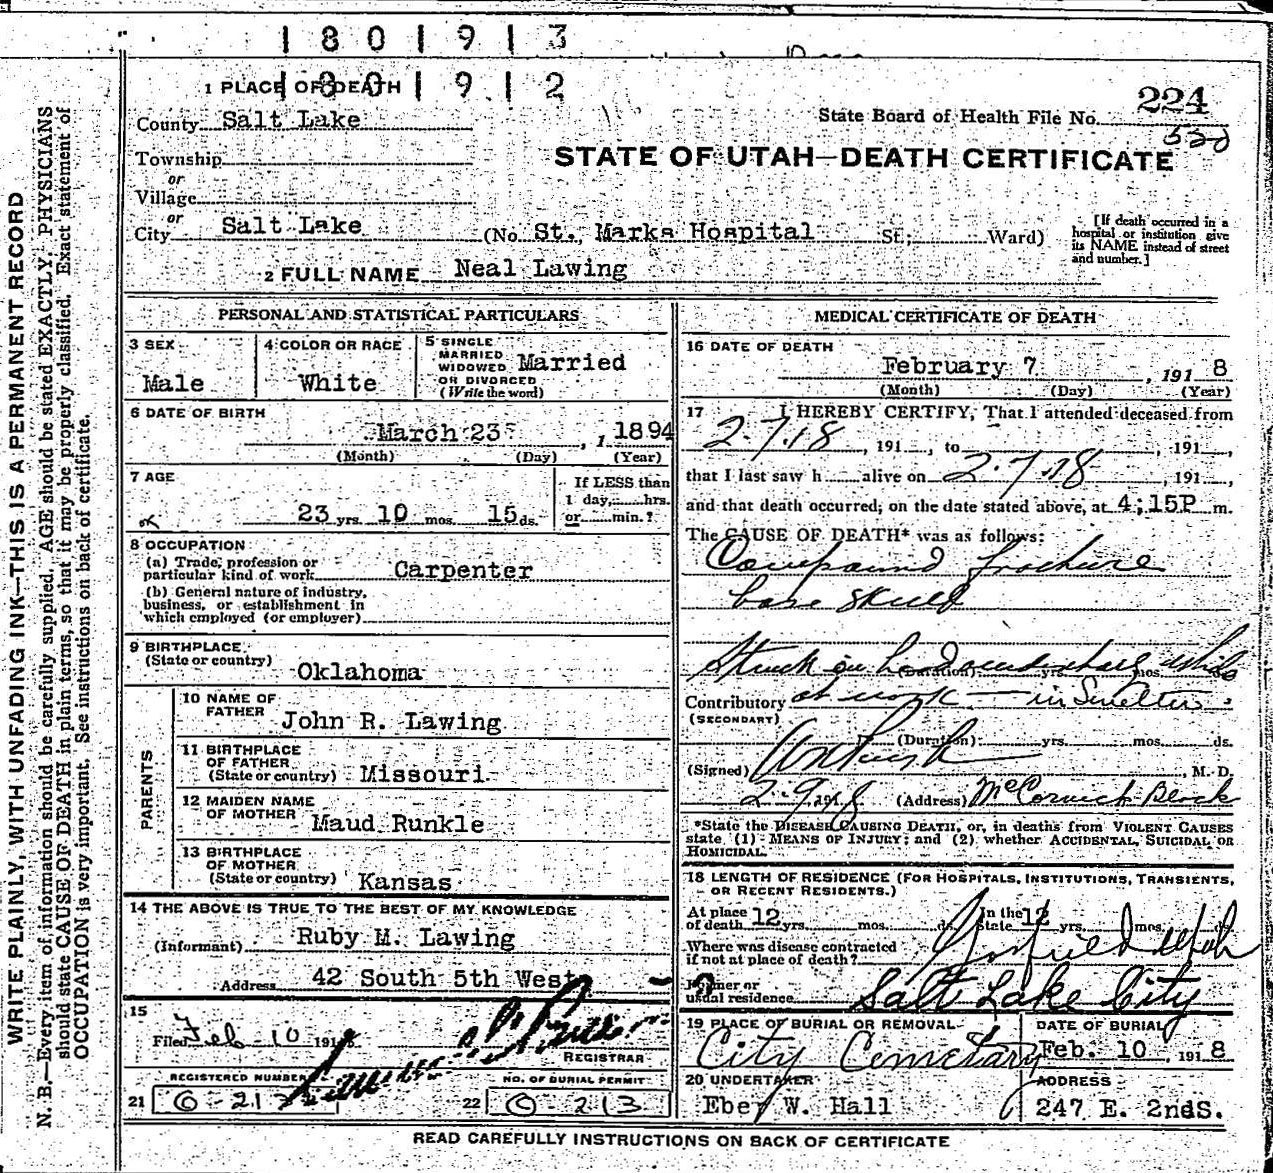 1 8 0 1 9 1 3
1 8 0 1 9 1 2
1 PLACE OF DEATH
224
State Board of Health File No.
County Salt Lake
STATE OF UTAH—DEATH CERTIFICATE
Township
or
Village
or
City Salt Lake (No. St. Marks Hospital St., Ward)
[If death occurred in a hospital or institution give its NAME instead of street and number.]
2 FULL NAME Neal Lawing
PERSONAL AND STATISTICAL PARTICULARS
3 SEX
Male
4 COLOR OR RACE
White
5 SINGLE
MARRIED
WIDOWED
OR DIVORCED
(Write the word)
Married
6 DATE OF BIRTH
March 23 , 1 1894
(Month) (Day) (Year)
7 AGE
23 yrs. 10 mos. 15 ds.
If LESS than
1 day,......hrs.
or......min.?
8 OCCUPATION
(a) Trade, profession or
particular kind of work Carpenter
(b) General nature of industry,
business, or establishment in
which employed (or employer)
9 BIRTHPLACE
(State or country) Oklahoma
PARENTS
10 NAME OF
FATHER John R. Lawing
11 BIRTHPLACE
OF FATHER
(State or country) Missouri
12 MAIDEN NAME
OF MOTHER Maud Runkle
13 BIRTHPLACE
OF MOTHER
(State or country) Kansas
14 THE ABOVE IS TRUE TO THE BEST OF MY KNOWLEDGE
(Informant) Ruby M. Lawing
Address 42 South 5th West
15
Filed Feb-10 191 8
REGISTRAR
REGISTERED NUMBER
21
NO. OF BURIAL PERMIT
22 O-213
MEDICAL CERTIFICATE OF DEATH
16 DATE OF DEATH
February 7 , 191 8
(Month) (Day) (Year)
17 I HEREBY CERTIFY, That I attended deceased from
2-7-18, 191...., to , 191....,
that I last saw h alive on 2-7-18 , 191....,
and that death occurred, on the date stated above, at 4;15P m.
The CAUSE OF DEATH* was as follows:
Compound fracture
base skull
Struck on head
(Duration) yrs. mos.
Contributory at work — in Smelter
(SECONDARY)
(Duration) yrs. mos. ds.
(Signed) , M. D.
2-9, 191 8 (Address) McCornick Block
*State the DISEASE CAUSING DEATH, or, in deaths from VIOLENT CAUSES
state (1) MEANS OF INJURY; and (2) whether ACCIDENTAL, SUICIDAL OR
HOMICIDAL.
18 LENGTH OF RESIDENCE (FOR HOSPITALS, INSTITUTIONS, TRANSIENTS,
OR RECENT RESIDENTS.)
At place
of death 12 yrs. mos. ds.
In the
State 12 yrs. mos.
Where was disease contracted
if not at place of death? Garfield Utah
Former or
usual residence Salt Lake City
19 PLACE OF BURIAL OR REMOVAL
City Cemetary
DATE OF BURIAL
Feb. 10 , 191 8
20 UNDERTAKER
Eber W. Hall
ADDRESS
247 E. 2ndS.
READ CAREFULLY INSTRUCTIONS ON BACK OF CERTIFICATE
WRITE PLAINLY, WITH UNFADING INK—THIS IS A PERMANENT RECORD
N. B.—Every item of information should be carefully supplied. AGE should be stated EXACTLY. PHYSICIANS
should state CAUSE OF DEATH in plain terms, so that it may be properly classified. Exact statement of
OCCUPATION is very important. See instructions on back of certificate.